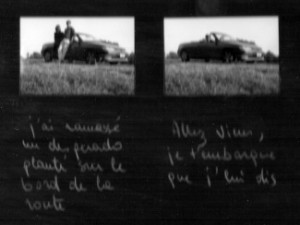 j'ai ramassé
un desperado
planté sur le
bord de la
route
Allez viens,
je t'embarque
que j'lui dis